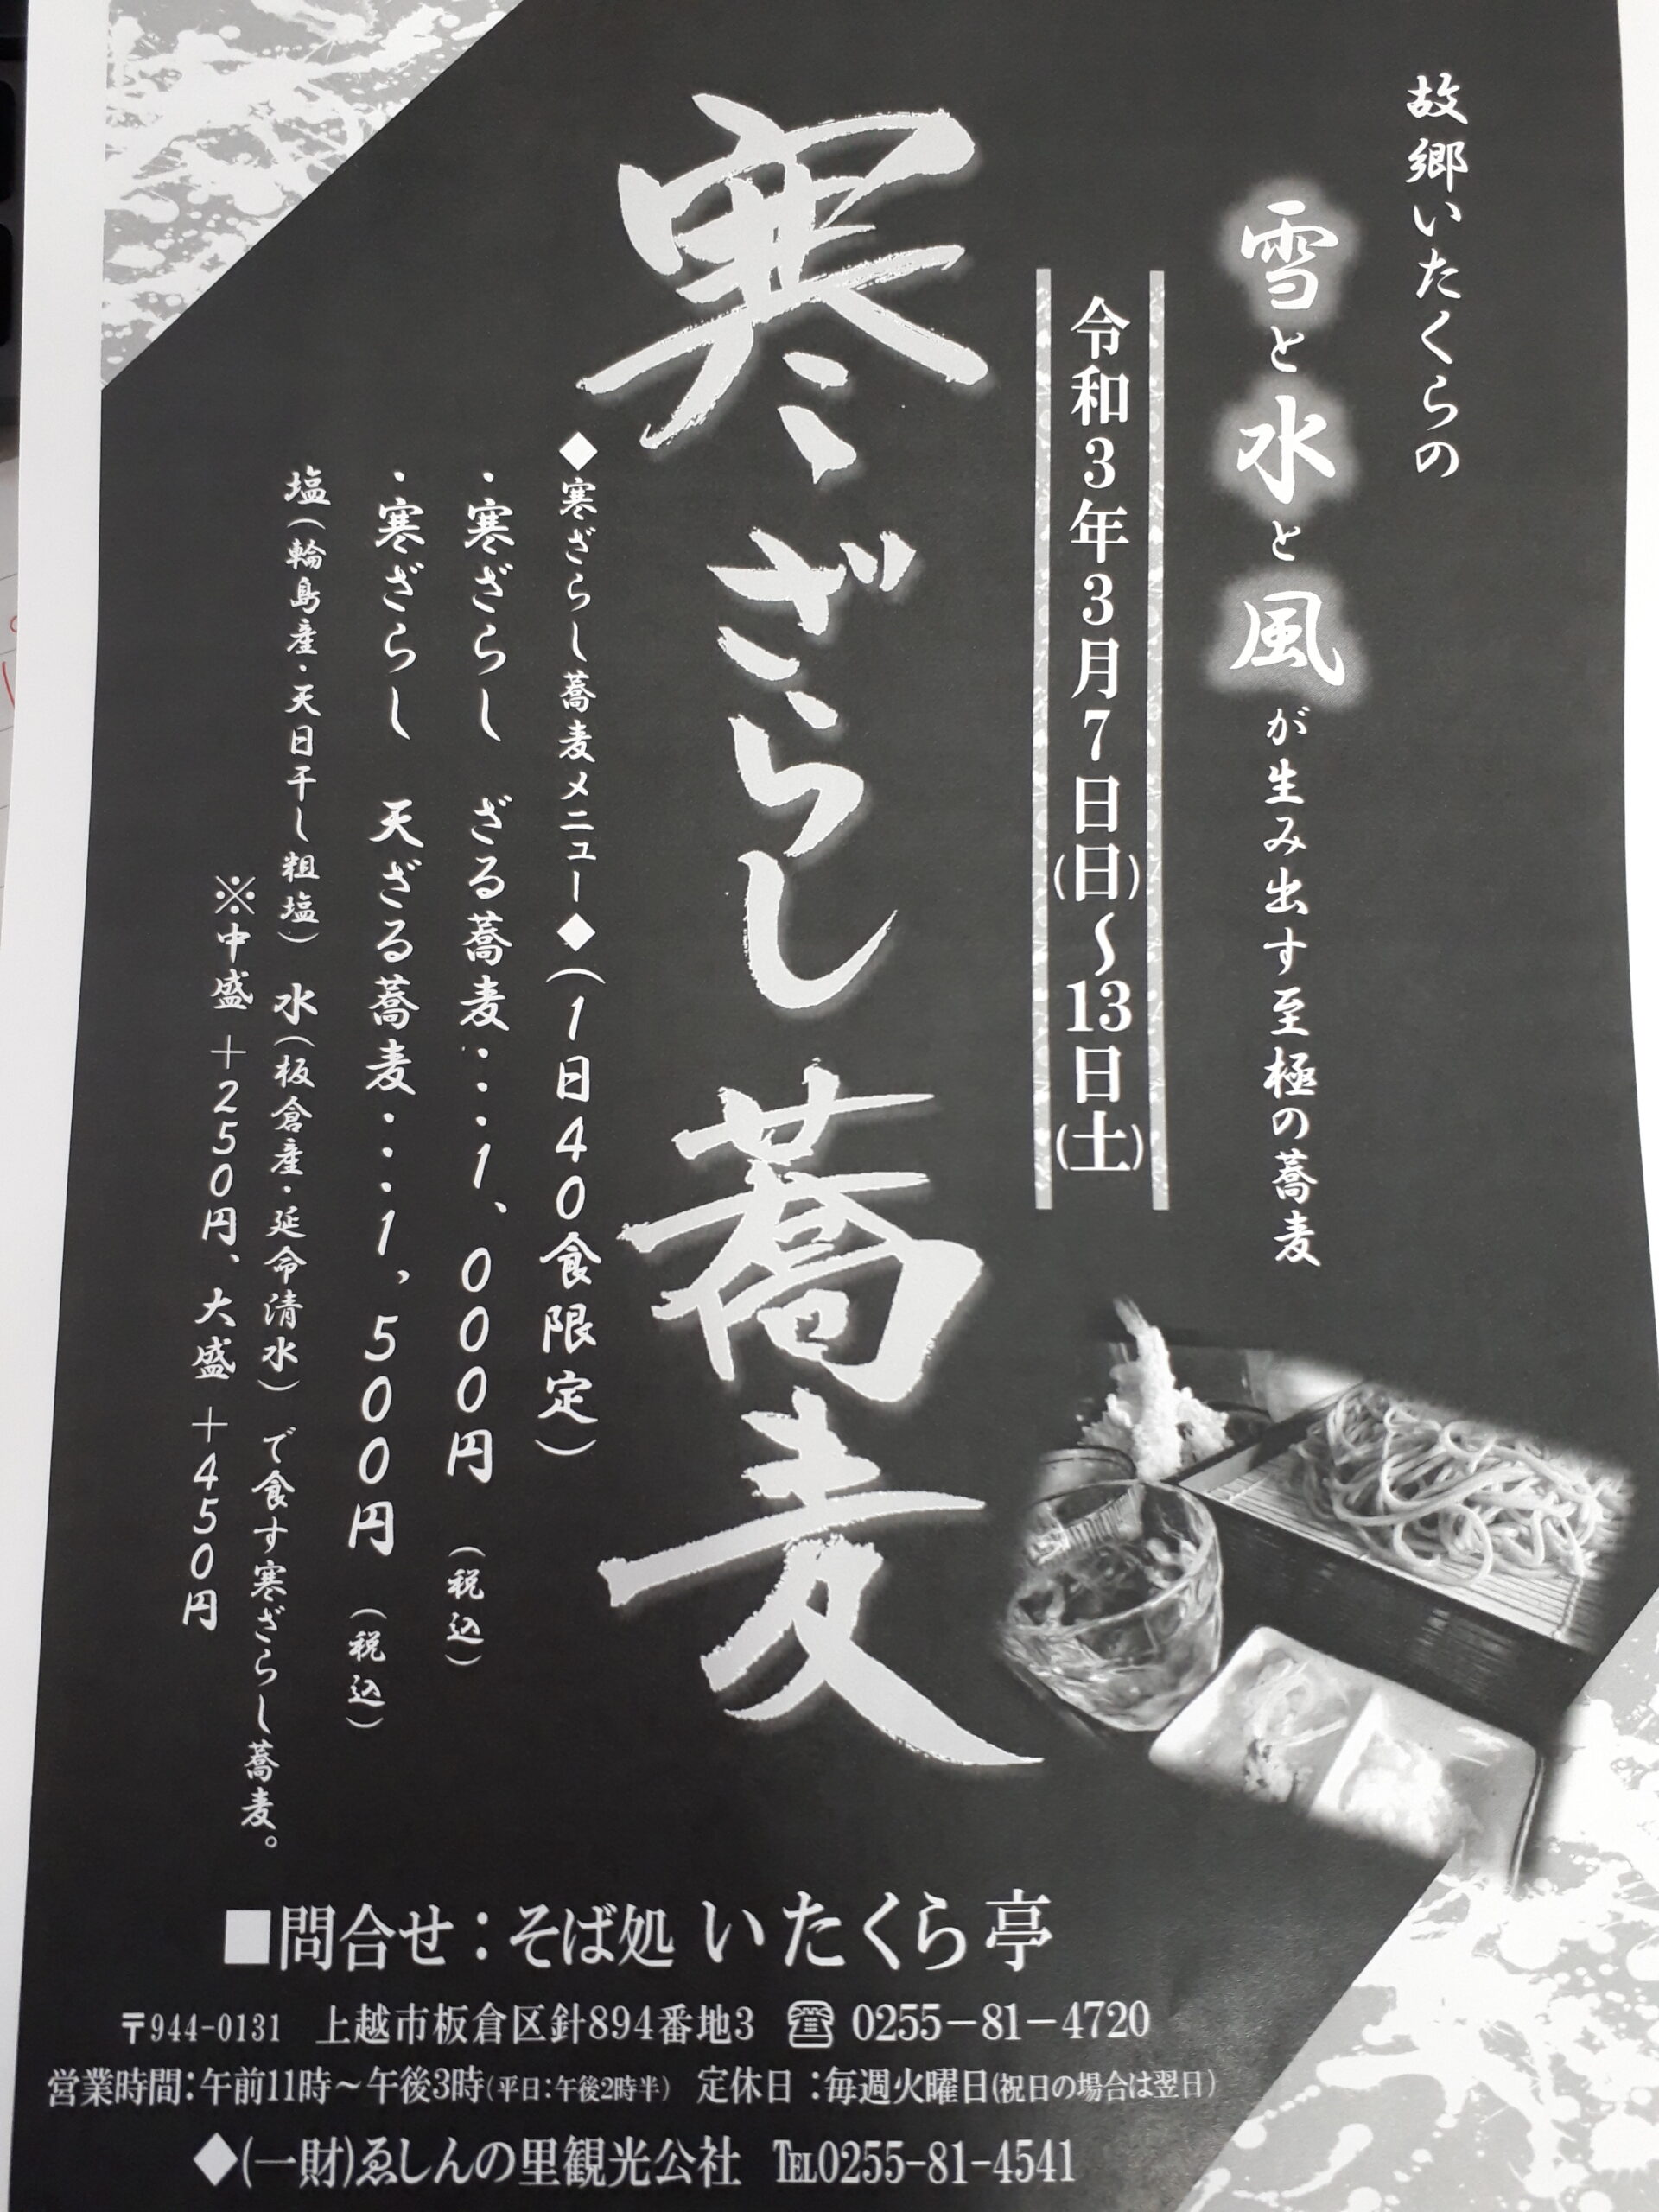 故郷いたくらの
雪と水と風が生み出す至極の蕎麦
令和3年3月7日(日)～13日(土)
寒ざらし蕎麦
◆寒ざらし蕎麦メニュー◆(1日40食限定)
・寒ざらし ざる蕎麦・・・1、000円 (税込)
・寒ざらし 天ざる蕎麦・・・1,500円 (税込)
塩(輪島産・天日干し粗塩) 水(板倉産・延命清水) で食す寒ざらし蕎麦。
※中盛 +250円、大盛 +450円
■問合せ:そば処 いたくら亭
〒944-0131 上越市板倉区針894番地3 ☎ 0255-81-4720
営業時間:午前11時~午後3時(平日:午後2時半) 定休日:毎週火曜日(祝日の場合は翌日)
◆(一財)ゑしんの里観光公社 ℡0255-81-4541